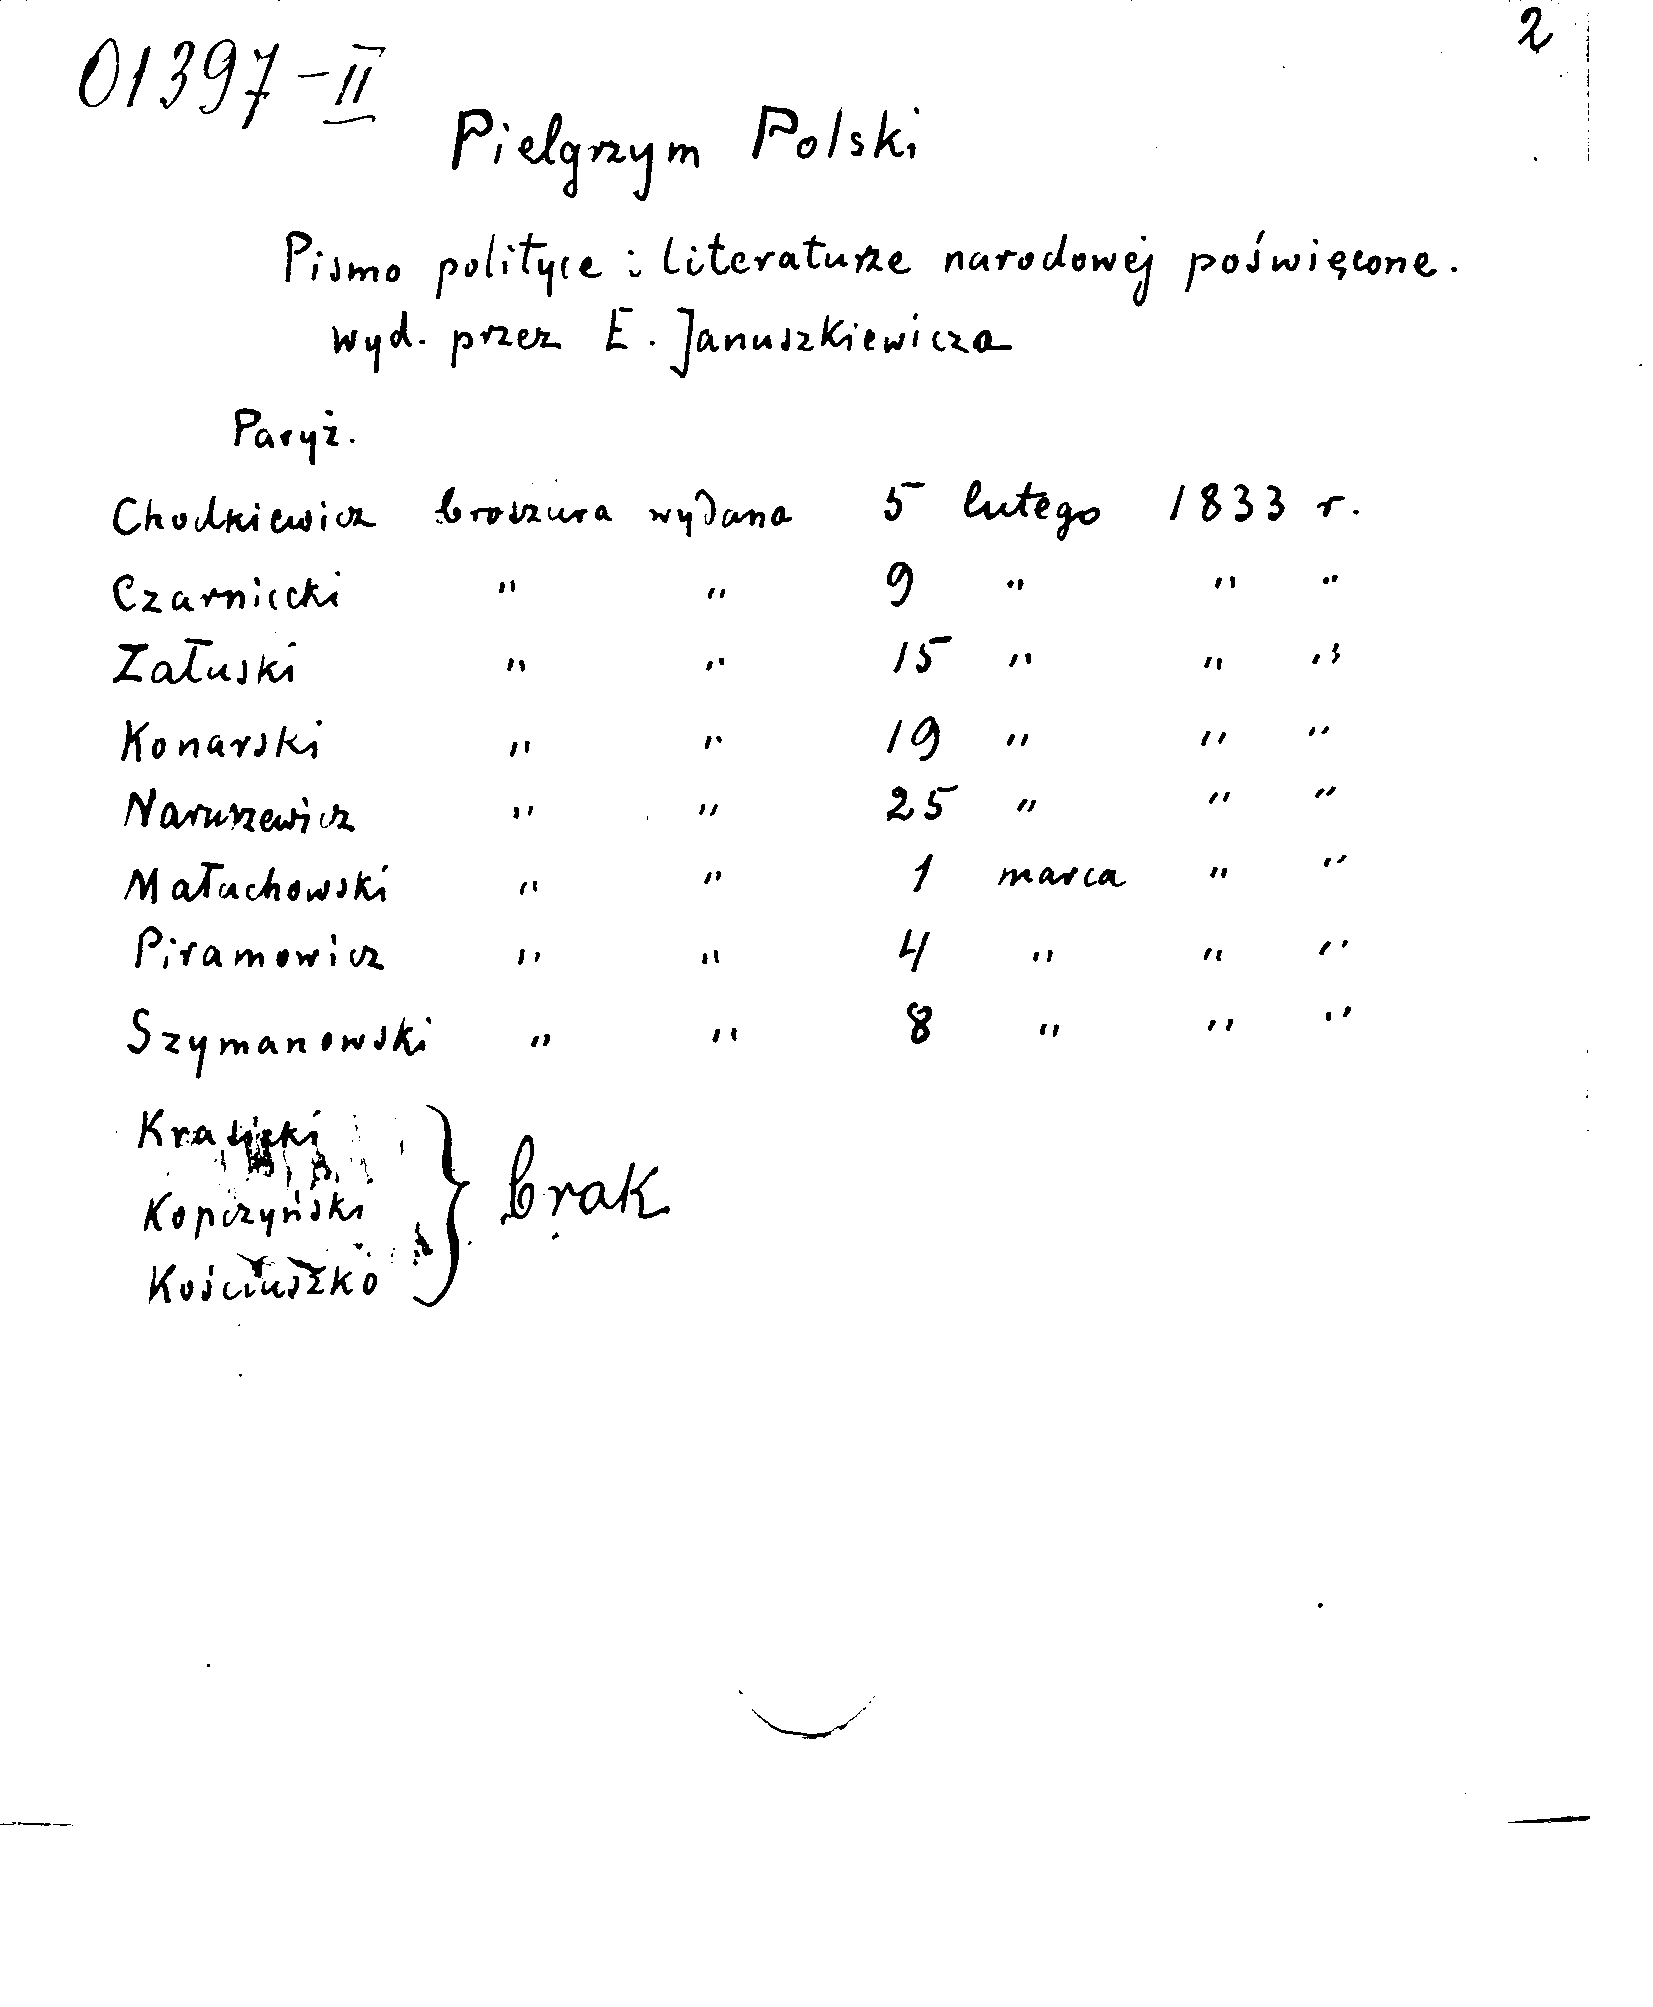 2
01397-II
Pielgrzym Polski
Pismo polityce i literaturze narodowej poświęcone.
wyd. przez E. Januszkiewicza
Paryż.
Chodkiewicz broszura wydana 5 lutego 1833 r.
Czarniecki " " 9 " " "
Załuski " " 15 " " "
Konarski " " 19 " " "
Naruszewicz " " 25 " " "
Małachowski " " 1 marca " "
Piramowicz " " 4 " " "
Szymanowski " " 8 " " "
Krasicki
Kopczyński } brak
Kościuszko